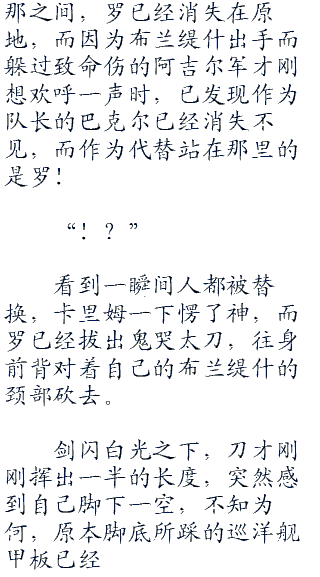 那之间，罗已经消失在原
地，而因为布兰缇什出手而
躲过致命伤的阿吉尔军才刚
想欢呼一声时，已发现作为
队长的巴克尔已经消失不
见，而作为代替站在那里的
是罗！
“！？”
看到一瞬间人都被替
换，卡里姆一下愣了神，而
罗已经拔出鬼哭太刀，往身
前背对着自己的布兰缇什的
颈部砍去。
剑闪白光之下，刀才刚
刚挥出一半的长度，突然感
到自己脚下一空，不知为
何，原本脚底所踩的巡洋舰
甲板已经